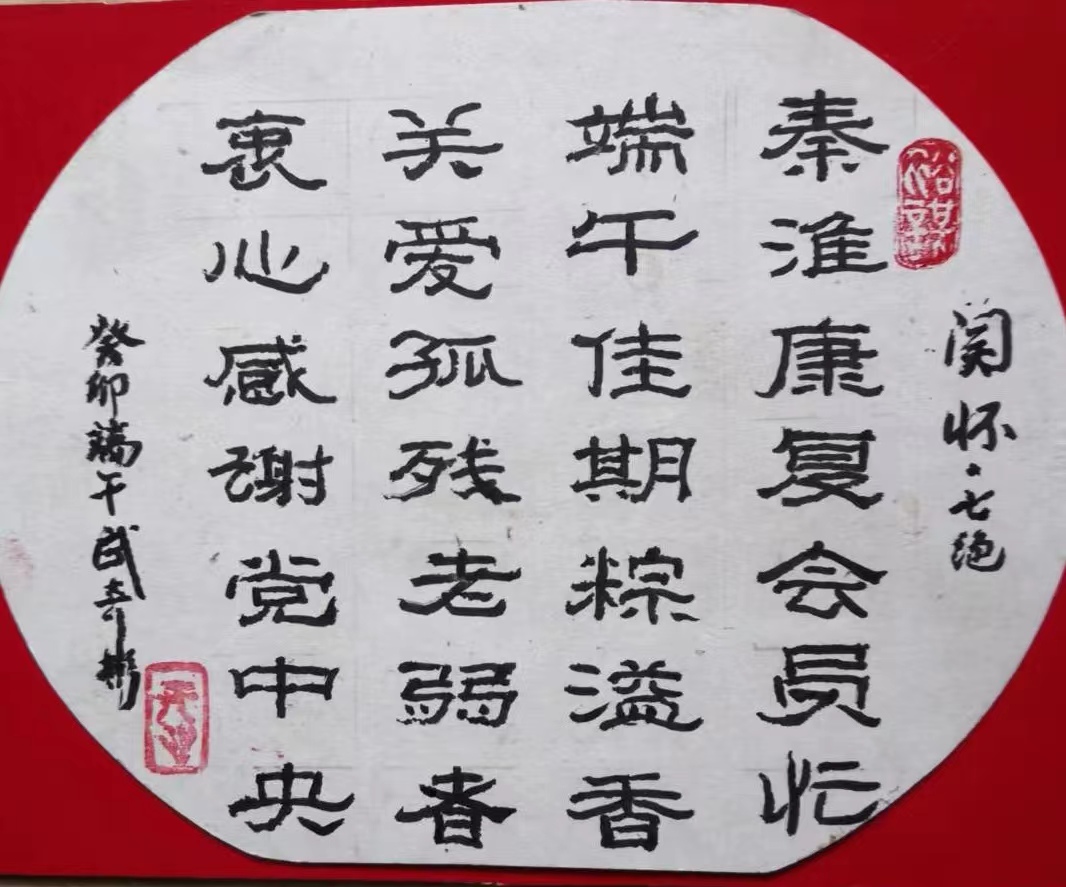 関怀·七绝
秦淮康复会员忙
端午佳期粽溢香
关爱孤残老弱者
衷心感谢党中央
癸卯端午武奇彬